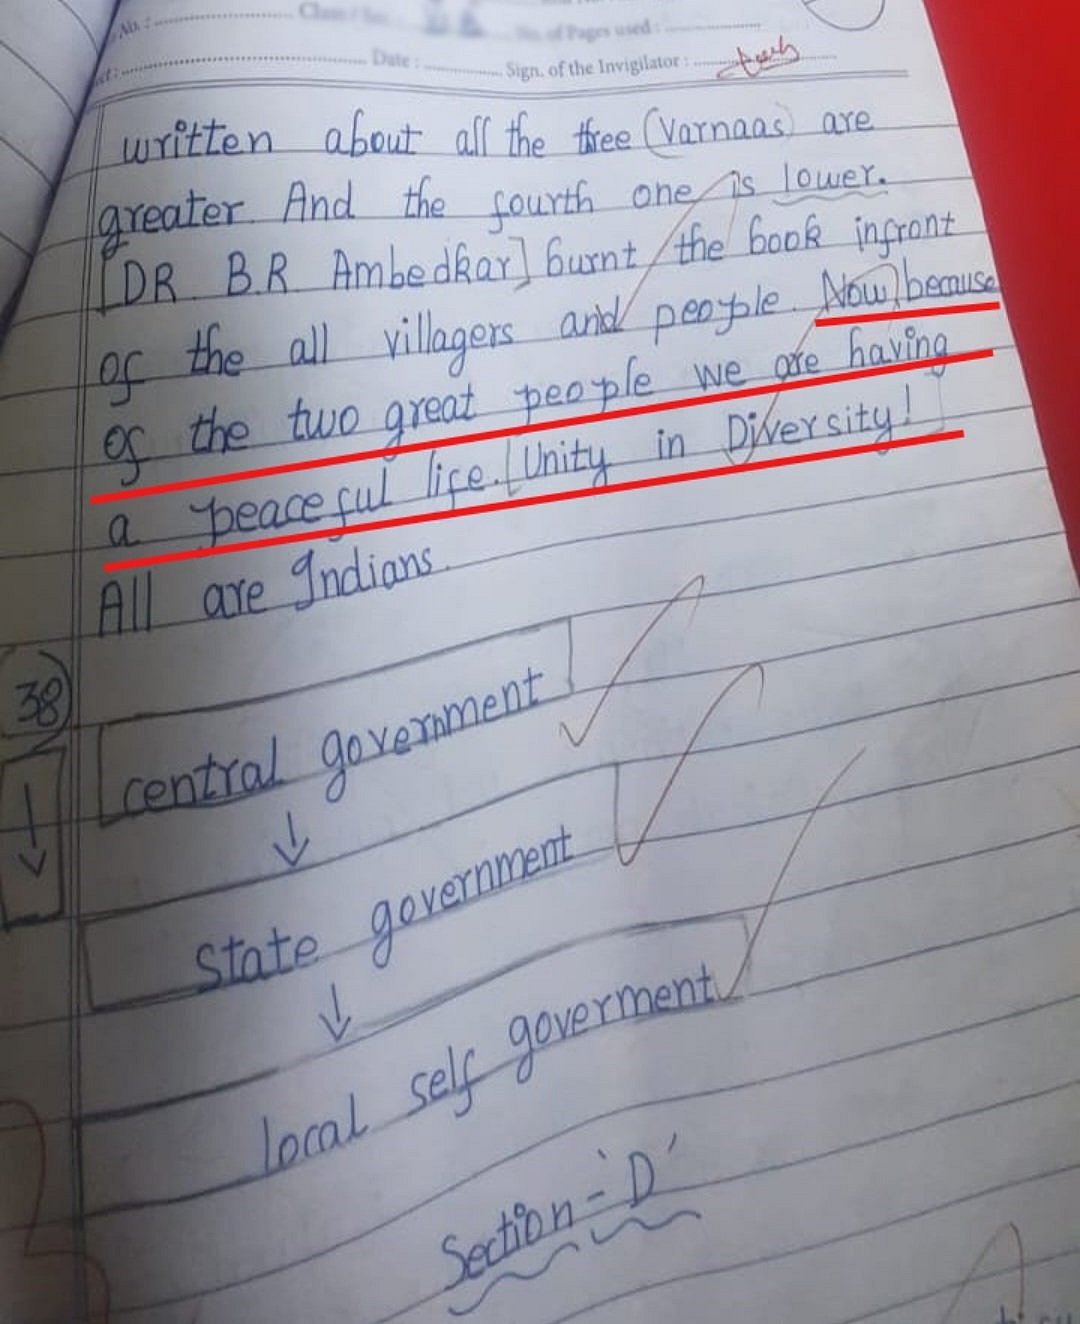 No. :
Class / Sec.
No. of Pages used :
Date : Sign. of the Invigilator :
written about all the three (Varnaas) are
greater And the fourth one is lower.
[DR B.R Ambedkar] burnt the book infront
of the all villagers and people. Now, because
of the two great people we are having
a peaceful life. [Unity in Diversity!]
All are Indians.
38
central government
↓
State government
↓
local self goverment
Section - 'D'